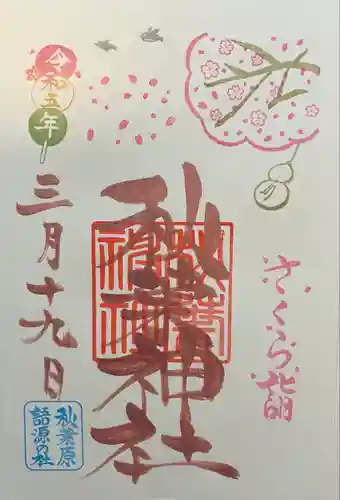 さくら詣
秋葉神社
秋葉神社
令和五年
三月十九日
秋葉原
語源の社